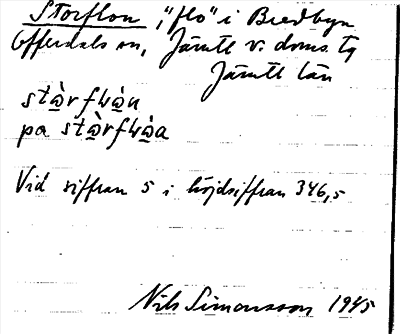 Storflon, "flo" i Bredbyn
Offerdals sn, Jämtl v. doms. tg
Jämtl län
stæ̀rflæ̀n
pa stæ̀rflæ̀a
Vid siffran 5 i höjdsiffran 346,5
Nils Simonsson 1945